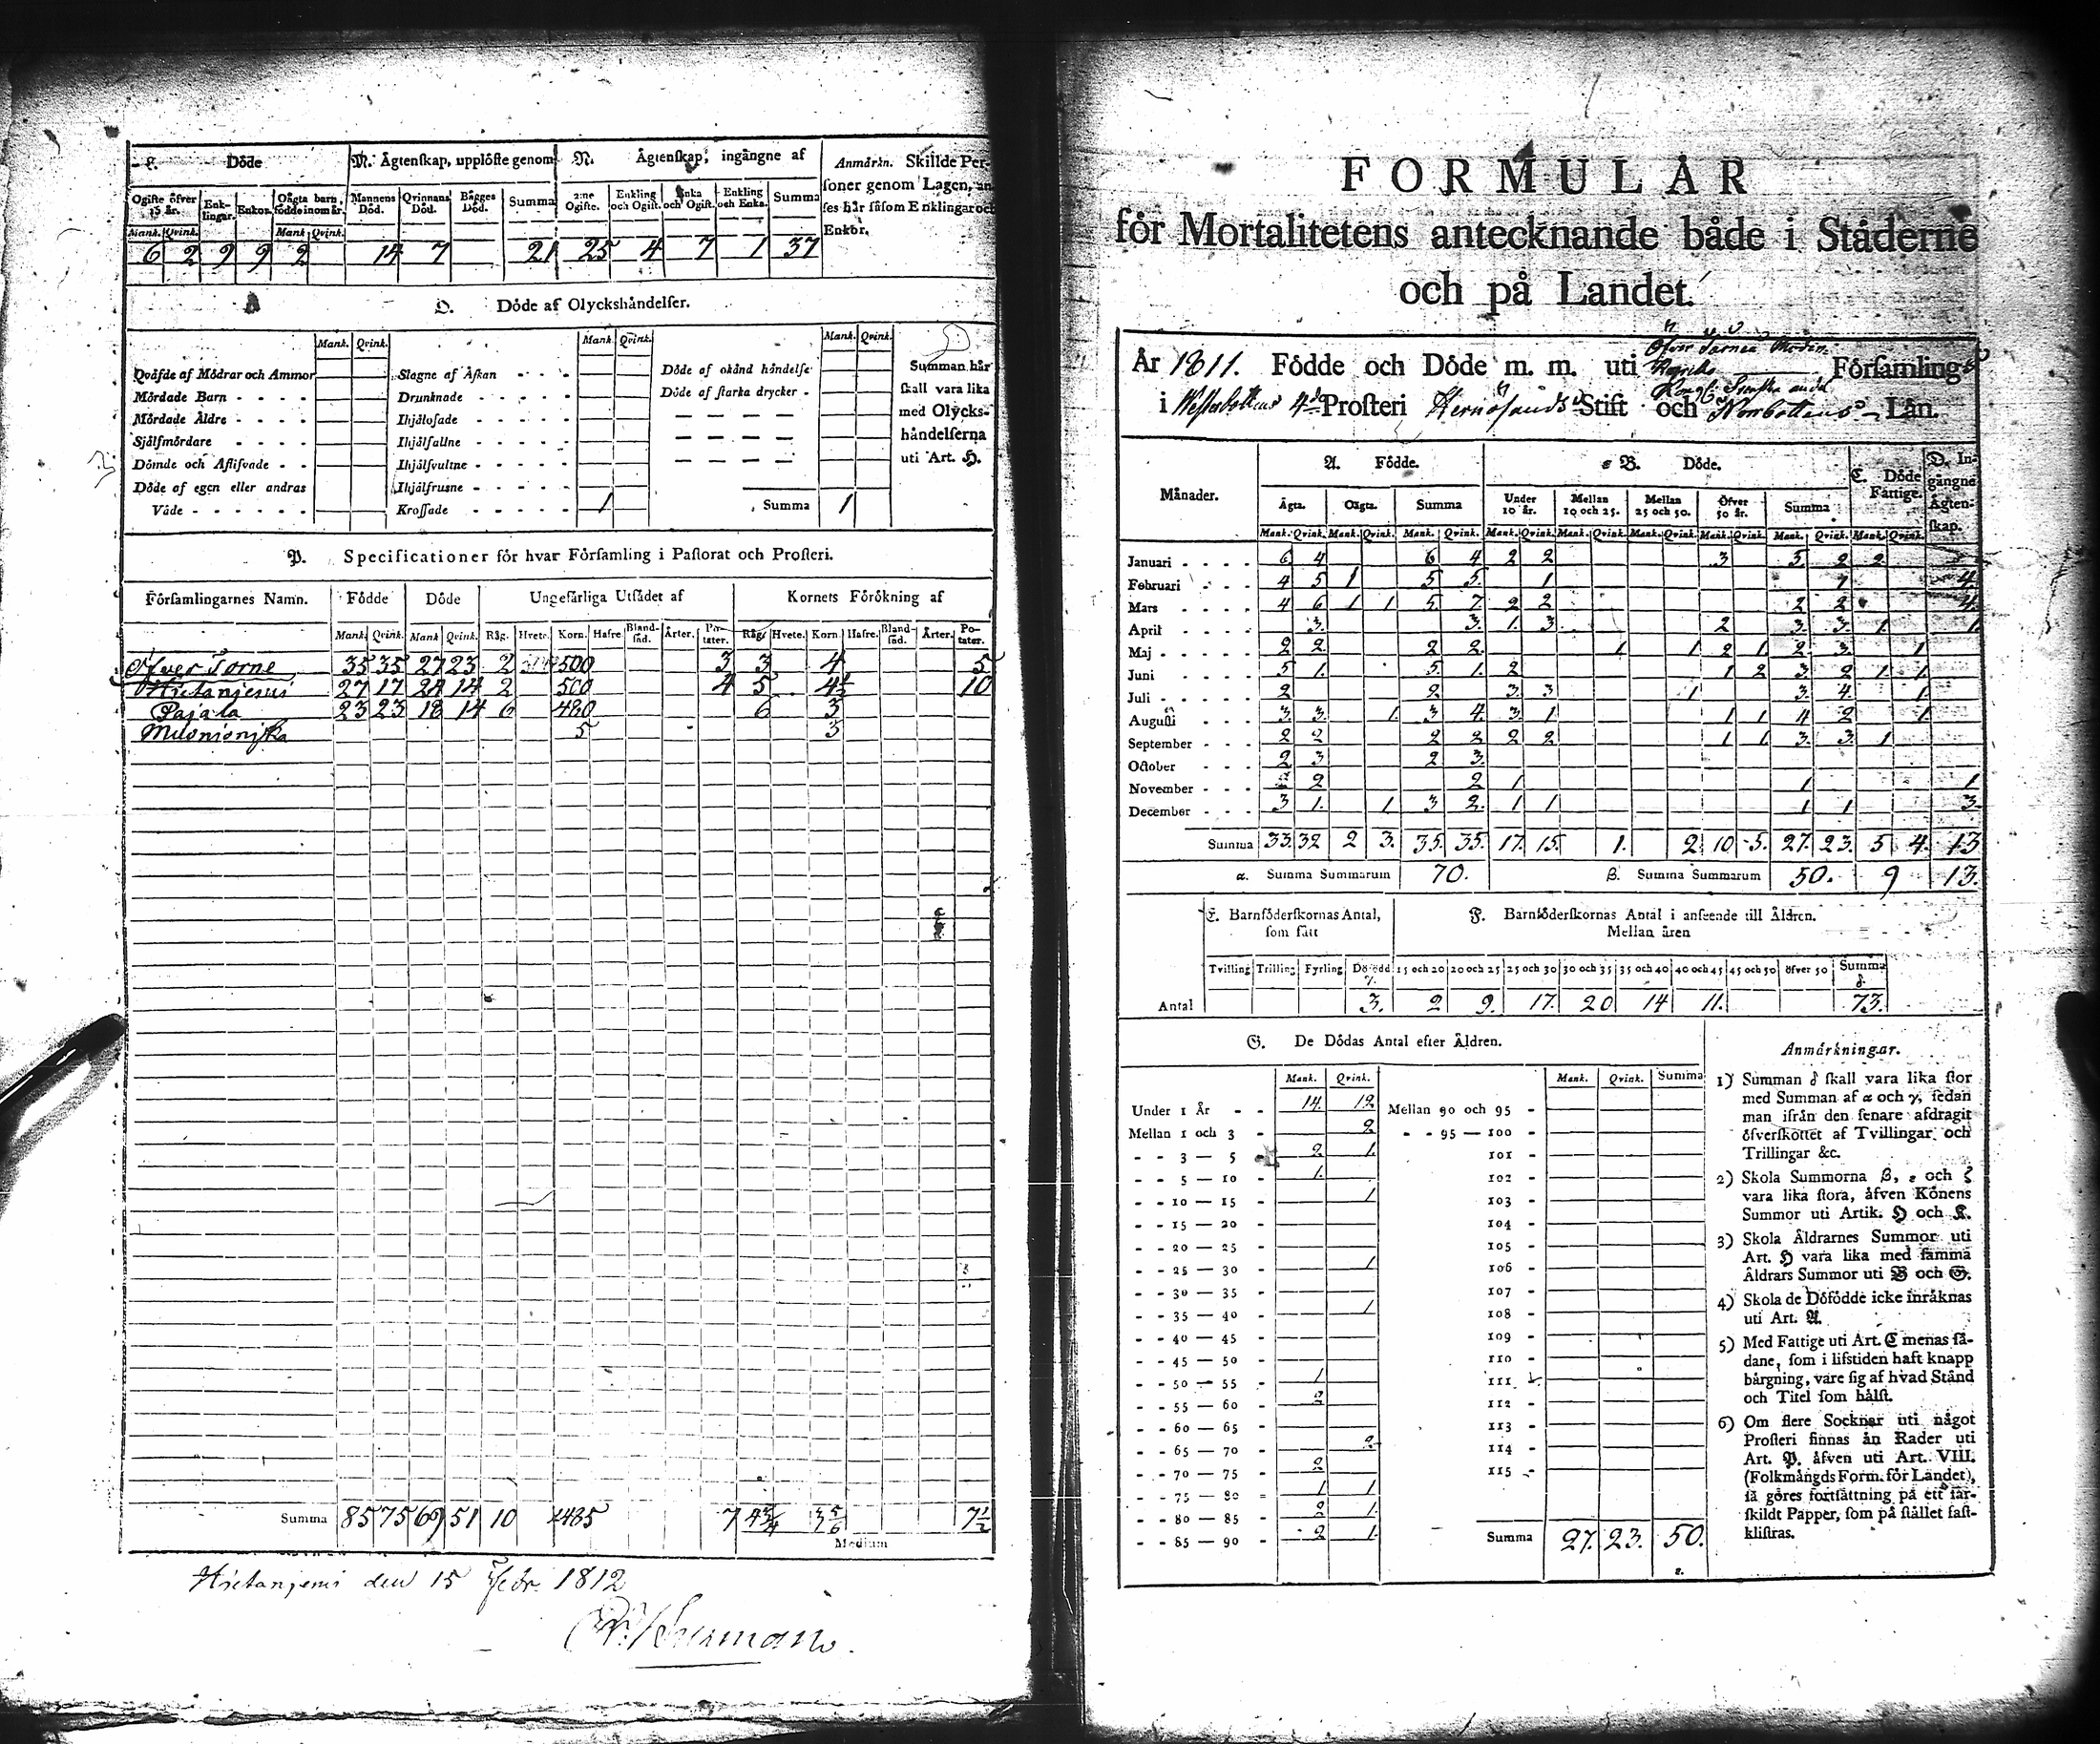 L. Döde
M. Ägtenskap, upplöste genom
N. Ägtenskap, ingångne af
Anmärkn. Skillde Personer genom Lagen, anses här såsom Enklingar och Enkor.
Ogifte öfver 15 år. Enklingar. Enkor. Oägta barn, födde inom år. Mannens Död. Qvinnans Död. Bägges Död. Summa 2:ne Ogifte. Enkling och Ogift. Enka och Ogift. Enkling och Enka. Summa
Mank. Qvink. Mank. Qvink.
6 2 9 9 2 14 7 21 25 4 7 1 37
O. Döde af Olyckshändelser.
Mank. Qvink. Mank. Qvink. Mank. Qvink.
Qväfde af Mödrar och Ammor Slagne af Åskan - - - Döde af okänd händelse Summan här
Mördade Barn - - - - Drunknade - - - - - Döde af starka drycker - skall vara lika
Mördade Äldre - - - - Ihjälsofade - - - - - — — — — med Olycks-
Självmördare - Ihjälfallne - - - - - — — — — händelserna
Dömde och Aflifvade - - Ihjälsvultne - - - - — — — — uti Art. H.
Döde af egen eller andras Ihjälfrusne - - - - -
Våde - - - - - - Krossade - - - - 1 Summa 1
P. Specificationer för hvar Församling i Pastorat och Prosteri.
Församlingarnes Namn. Födde Döde Ungefärliga Utsädet af Kornets Förökning af
Mank. Qvink. Mank. Qvink. Råg. Hvete. Korn. Hafre. Blandsäd. Ärter. Potater. Råg. Hvete. Korn. Hafre. Blandsäd. Ärter. Potater.
Öfver Torne 35 35 27 23 2 500 3 3 4 5
Hietanjemi 27 17 24 14 2 500 4 5 4½ 10
Pajala 23 23 18 14 6 480 6 3
Muonionjska 5 3
Summa 85 75 69 51 10 1485 7 4¾ 3⅚ 7½
Medium
Hietanjemi den 15 Febr. 1812
FORMULÄR
för Mortalitetens antecknande både i Städerne
och på Landet.
År 1811. Födde och Döde m. m. uti Öfver Torneå Församling
i Westerbottens 4de Prosteri Hernösands Stift och Norrbottens Län.
Månader. A. Födde. B. Döde. C. Döde Fattige. D. Ingångne Ägtenskap.
Ägta. Oägta. Summa Under 10 år. Mellan 10 och 25. Mellan 25 och 50. Öfver 50 år. Summa
Mank. Qvink. Mank. Qvink. Mank. Qvink. Mank. Qvink. Mank. Qvink. Mank. Qvink. Mank. Qvink. Mank. Qvink. Mank. Qvink.
Januari - - - - 6 4 6 4 2 2 3 5 2 2
Februari - - - - 4 5 1 5 5 1 1 4
Mars - - - - 4 6 1 1 5 7 2 2 2 2 4
April - - - - 3. 3. 1. 3 2 3. 3. 1. 1.
Maj - - - - 2 2 2 2. 1 1 2 1. 2. 3. 1
Juni - - - - 5 1. 5. 1. 2 1 2 3. 2 1. 1.
Juli - - - - 2 2 3. 3 1 3. 4. 1
Augusti - - - 3 3. 1. 3 4. 3. 1 1 1 4 2 1
September - - - 2 2 2 2 2 2 1 1. 3. 3. 1
October - - - 2 3 2 3.
November - - - 2 2 1 1 1
December - - - 3 1. 1 3 2. 1 1 1 1 3
Summa 33. 32 2 3. 35. 35. 17. 15. 1. 2 10 5. 27. 23. 5 4. 13
α. Summa Summarum 70. β. Summa Summarum 50. 9 13.
E. Barnföderskornas Antal, som fått
F. Barnföderskornas Antal i anseende till Åldren.
Mellan åren
Tvilling Trilling Fyrling Dödfödd γ. 15 och 20 20 och 25 25 och 30 30 och 35 35 och 40 40 och 45 45 och 50 öfver 50 Summa δ.
Antal 3. 2 9. 17. 20 14 11. 73.
G. De Dödas Antal efter Åldren.
Mank. Qvink. Mank. Qvink. Summa
Under 1 År - - 14. 12 Mellan 90 och 95 -
Mellan 1 och 3 - 2 - - 95 — 100 -
- - 3 — 5 - 2 1. 101 -
- - 5 — 10 - 1. 102 -
- - 10 — 15 - 1 103 -
- - 15 — 20 - 104 -
- - 20 — 25 - 105 -
- - 25 — 30 - 1 106 -
- - 30 — 35 - 107 -
- - 35 — 40 - 1 108 -
- - 40 — 45 - 109 -
- - 45 — 50 - 110 -
- - 50 — 55 - 1 111 -
- - 55 — 60 - 2 112 -
- - 60 — 65 - 113 -
- - 65 — 70 - 2 114 -
- - 70 — 75 - 2 115 -
- - 75 — 80 - 1 1
- - 80 — 85 - 2 1.
- - 85 — 90 - 2 1. Summa 27. 23. 50.
ε.
Anmärkningar.
1) Summan δ skall vara lika stor
med Summan af α och γ, sedan
man ifrån den senare afdragit
öfverskottet af Tvillingar och
Trillingar &c.
2) Skola Summorna β, ε och ζ
vara lika stora, äfven Könens
Summor uti Artik. H och K.
3) Skola Åldrarnes Summor uti
Art. H vara lika med samma
Åldrars Summor uti B och G.
4) Skola de Döfödde icke inräknas
uti Art. A.
5) Med Fattige uti Art. C menas så-
dane, som i lifstiden haft knapp
bärgning, vare sig af hvad Stånd
och Titel som hälst.
6) Om flere Socknar uti något
Prosteri finnas än Rader uti
Art. P. äfven uti Art. VIII.
(Folkmängds Form. för Landet),
så göres fortsättning på ett sär-
skildt Papper, som på stället fast-
klistras.